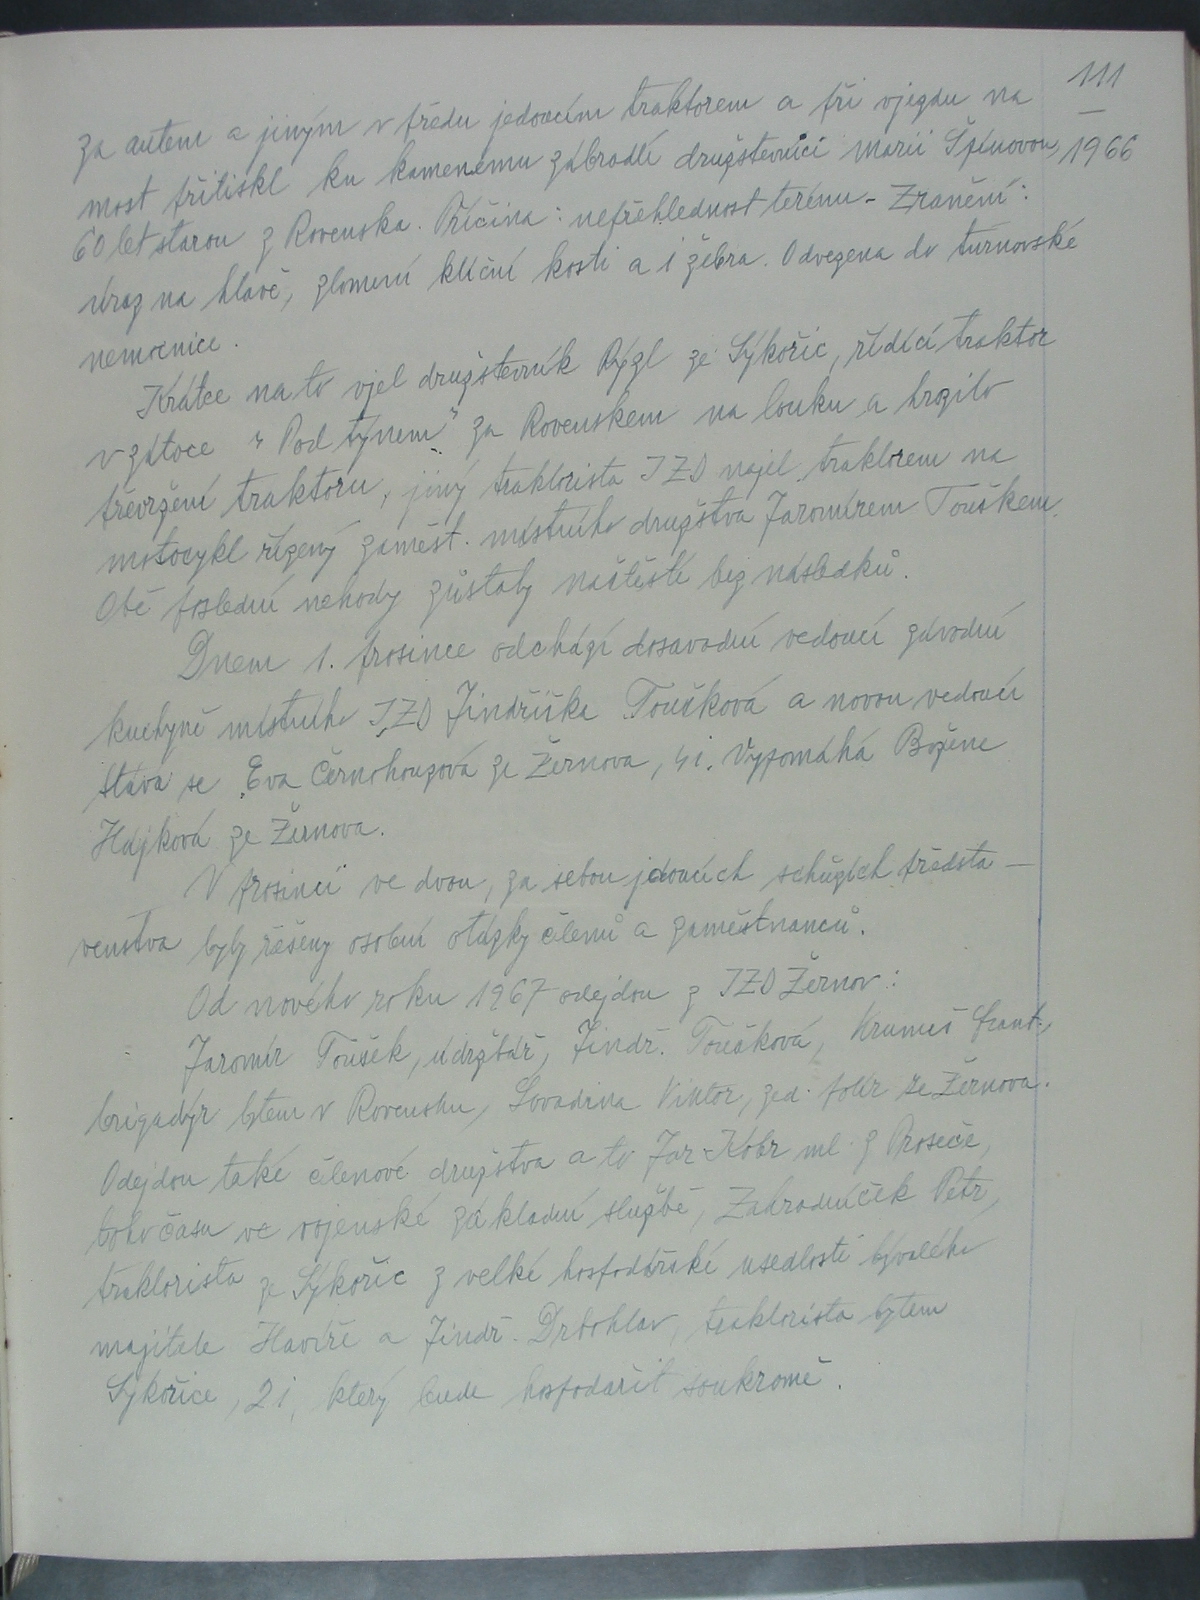 111
za autem a jiným v předu jedoucím traktorem a při vjezdu na
1966
most přitiskl ku kamenému zábradlí družstevnici Marii Špínovou,
60 let starou z Rovenska. Příčina: nepřehlednost terénu - Zranění:
úraz na hlavě, zlomení klíční kosti a 1 žebra. Odvezena do turnovské
nemocnice.
Krátce na to vjel družstevník Rýzl ze Sýkořic, řídící traktor
v zátoce "Pod týnem" za Rovenskem na louku a hrozilo
převržení traktoru, jiný traktorista JZD najel traktorem na
motocykl řízený zaměst. místního družstva Jaromírem Touškem.
Obě poslední nehody zůstaly naštěstí bez následků.
Dnem 1. prosince odchází dosavadní vedoucí závodní
kuchyně místního JZD Jindřiška Toušková a novou vedoucí
stává se Eva Černohouzová ze Žernova, 41. Vypomáhá Božena
Hájková ze Žernova.
V prosinci ve dvou, za sebou jdoucích schůzích předsta-
venstva byly řešeny osobní otázky členů a zaměstnanců.
Od nového roku 1967 odejdou z JZD Žernov:
Jaromír Toušek, údržbář, Jindř. Toušková, Krameš Frant.,
brigadýr bytem v Rovensku, Svadrna Viktor, zed. polír ze Žernova.
Odejdou také členové družstva a to Jar. Kobr ml. z Proseče,
toho času ve vojenské základní službě, Zahradníček Petr,
traktorista ze Sýkořic z velké hospodářské usedlosti bývalého
majitele Havíře a Jindř. Drbohlav, traktorista bytem
Sýkořice, 21, který bude hospodařit soukromě.